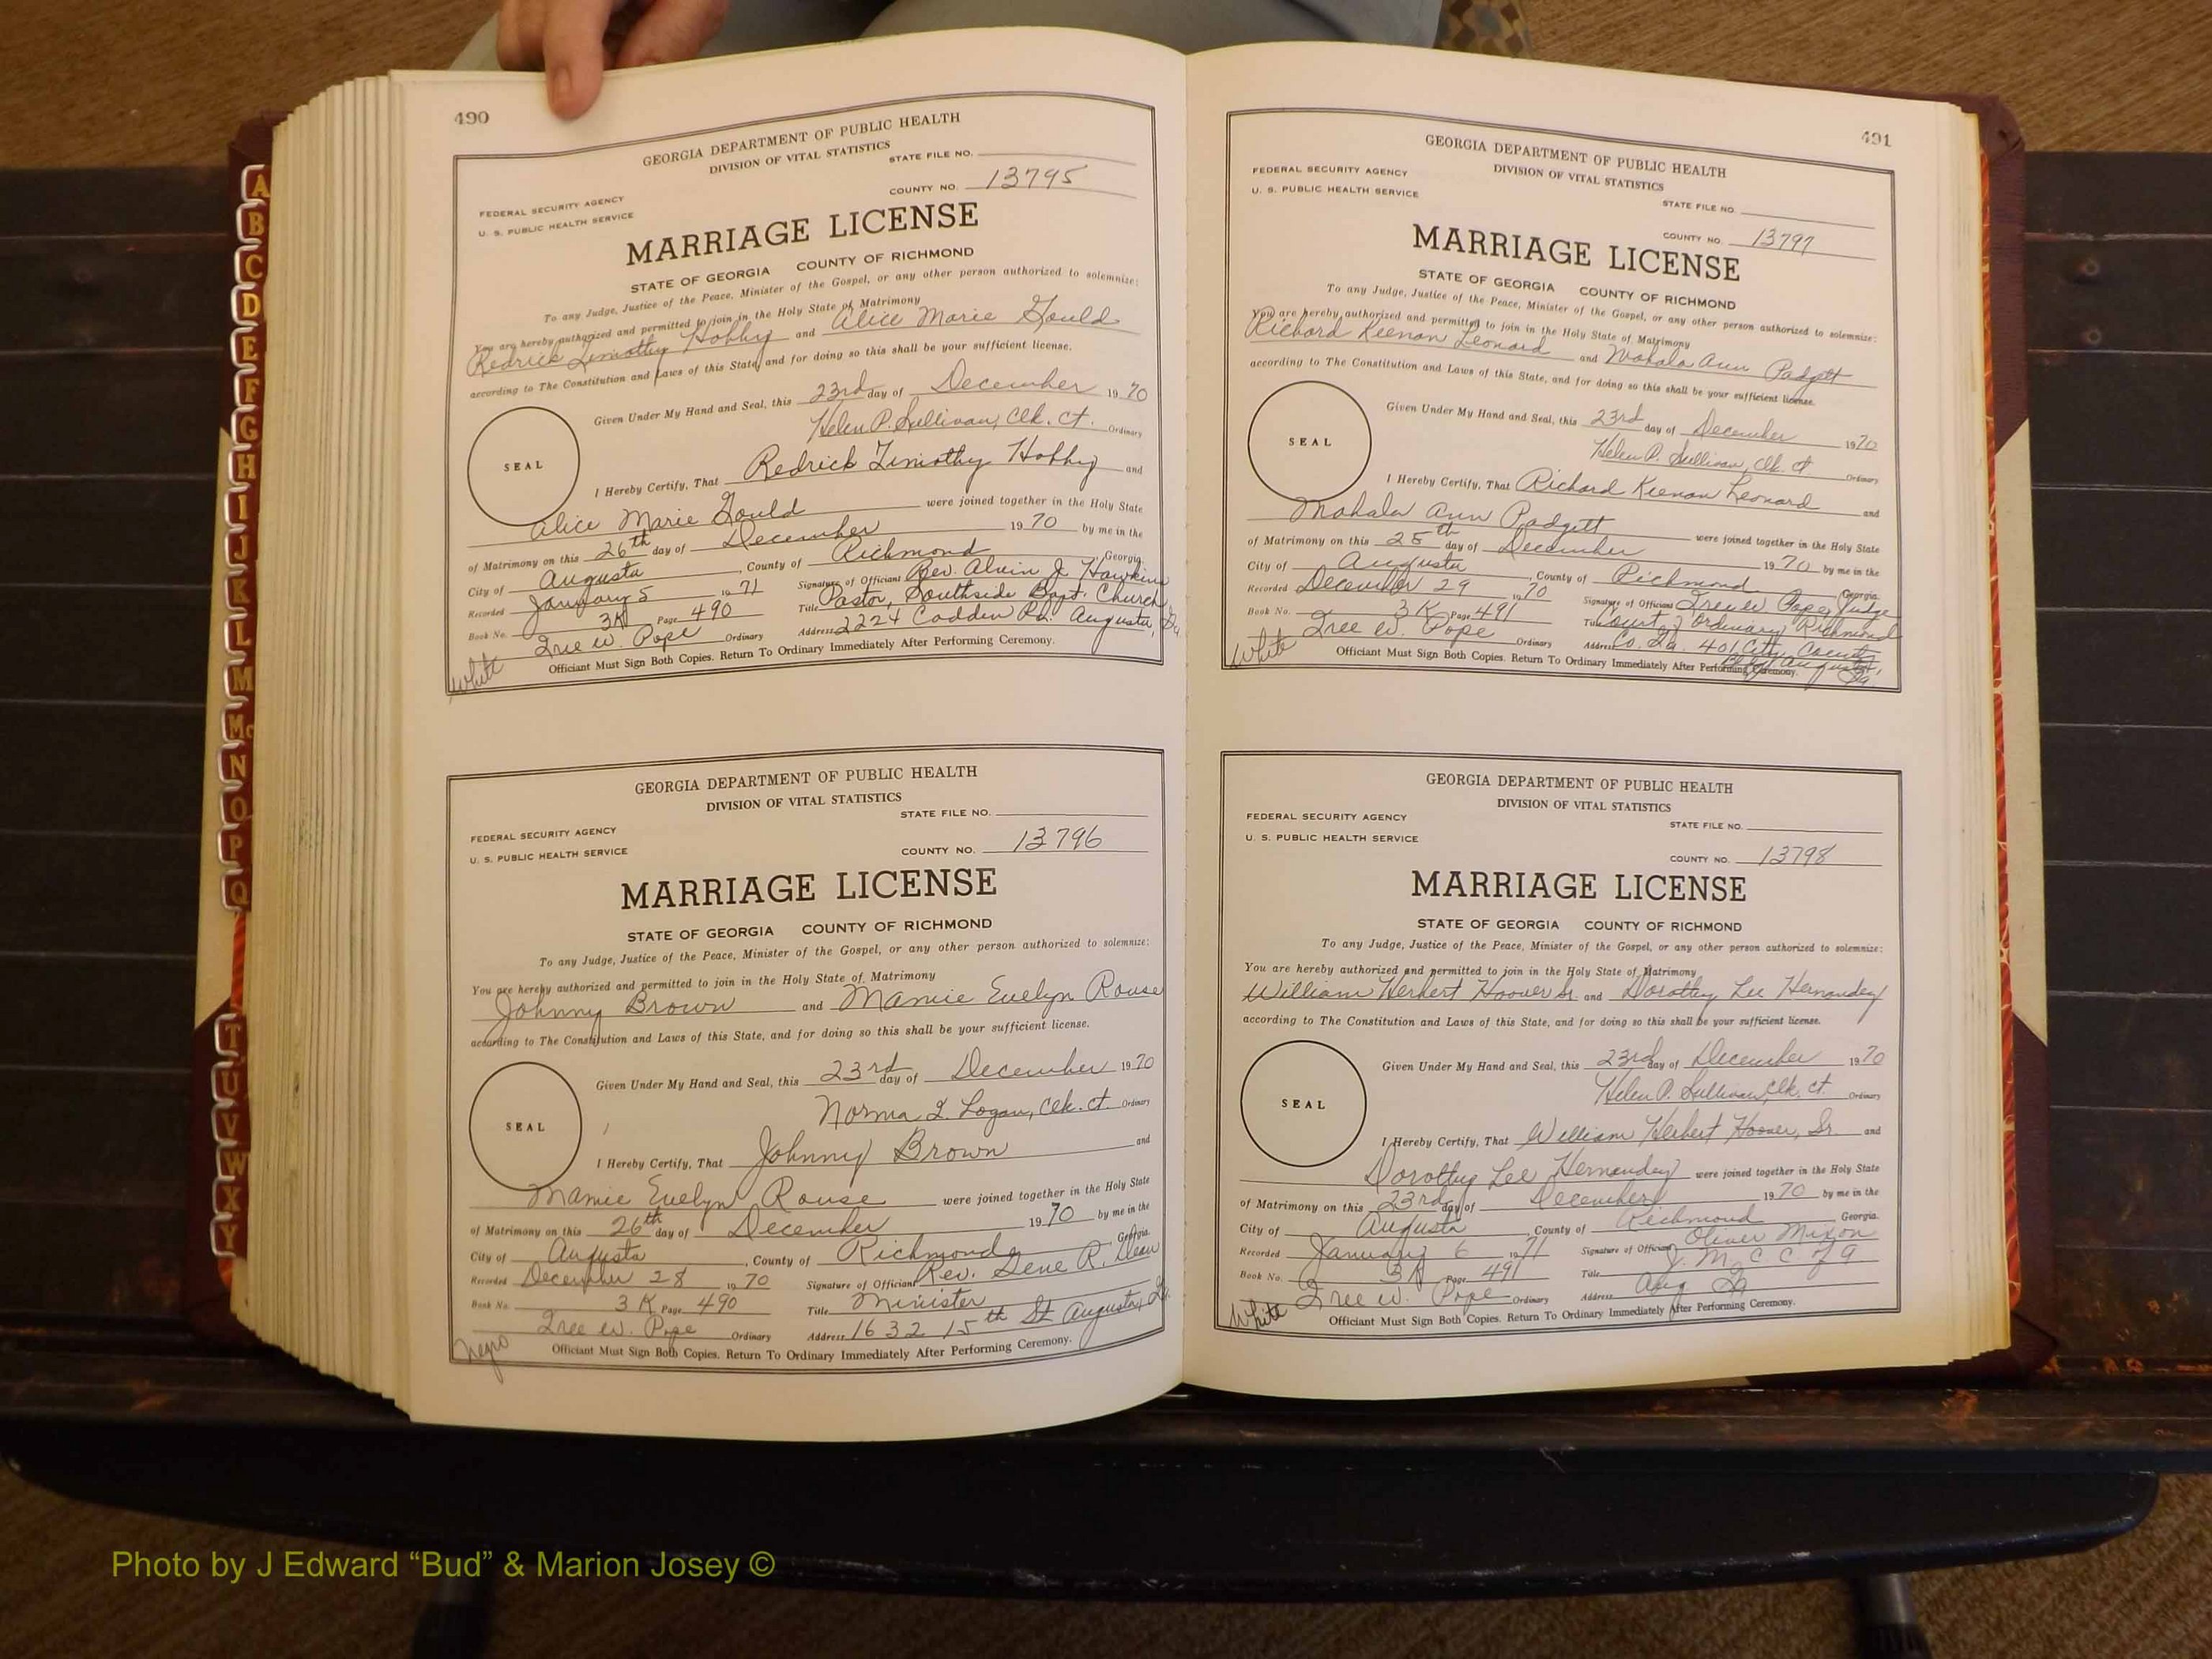 A
B
C
D
E
F
G
H
I
J
K
L
M
Mc
N
O
P
Q
T
U
V
W
X
Y
490
GEORGIA DEPARTMENT OF PUBLIC HEALTH
DIVISION OF VITAL STATISTICS
STATE FILE NO.
COUNTY NO. 13795
FEDERAL SECURITY AGENCY
U. S. PUBLIC HEALTH SERVICE
MARRIAGE LICENSE
STATE OF GEORGIA COUNTY OF RICHMOND
To any Judge, Justice of the Peace, Minister of the Gospel, or any other person authorized to solemnize:
You are hereby authorized and permitted to join in the Holy State of Matrimony
Redrick Timothy Hobby and Alice Marie Gould
according to The Constitution and Laws of this State, and for doing so this shall be your sufficient license.
Given Under My Hand and Seal, this 23rd day of December 1970
Helen P. Sullivan, Clk. Ct. Ordinary
SEAL
I Hereby Certify, That Redrick Timothy Hobby and
Alice Marie Gould were joined together in the Holy State
of Matrimony on this 26th day of December 1970 by me in the
City of Augusta, County of Richmond, Georgia.
Recorded January 5 1971 Signature of Officiant Rev. Alvin J. Hawkins
Book No. 3K Page 490 Title Pastor, Southside Bapt. Church
Iree W. Pope Ordinary Address 2224 Cadden Rd. Augusta, Ga
White Officiant Must Sign Both Copies. Return To Ordinary Immediately After Performing Ceremony.
GEORGIA DEPARTMENT OF PUBLIC HEALTH
DIVISION OF VITAL STATISTICS
STATE FILE NO.
FEDERAL SECURITY AGENCY
U. S. PUBLIC HEALTH SERVICE
COUNTY NO. 13796
MARRIAGE LICENSE
STATE OF GEORGIA COUNTY OF RICHMOND
To any Judge, Justice of the Peace, Minister of the Gospel, or any other person authorized to solemnize:
You are hereby authorized and permitted to join in the Holy State of Matrimony
Johnny Brown and Mamie Evelyn Rouse
according to The Constitution and Laws of this State, and for doing so this shall be your sufficient license.
Given Under My Hand and Seal, this 23rd day of December 1970
Norma I. Logan, Clk. Ct. Ordinary
SEAL
I Hereby Certify, That Johnny Brown and
Mamie Evelyn Rouse were joined together in the Holy State
of Matrimony on this 26th day of December 1970 by me in the
City of Augusta, County of Richmond, Georgia.
Recorded December 28 1970 Signature of Officiant Rev. Gene R. Dean
Book No. 3K Page 490 Title Minister
Iree W. Pope Ordinary Address 1632 15th St Augusta, Ga.
Negro Officiant Must Sign Both Copies. Return To Ordinary Immediately After Performing Ceremony.
491
GEORGIA DEPARTMENT OF PUBLIC HEALTH
DIVISION OF VITAL STATISTICS
FEDERAL SECURITY AGENCY
U. S. PUBLIC HEALTH SERVICE
STATE FILE NO.
COUNTY NO. 13797
MARRIAGE LICENSE
STATE OF GEORGIA COUNTY OF RICHMOND
To any Judge, Justice of the Peace, Minister of the Gospel, or any other person authorized to solemnize:
You are hereby authorized and permitted to join in the Holy State of Matrimony
Richard Keenan Leonard and Mahala Ann Padgett
according to The Constitution and Laws of this State, and for doing so this shall be your sufficient license.
Given Under My Hand and Seal, this 23rd day of December 1970
Helen P. Sullivan, Clk. Ct Ordinary
SEAL
I Hereby Certify, That Richard Keenan Leonard and
Mahala Ann Padgett were joined together in the Holy State
of Matrimony on this 25th day of December 1970 by me in the
City of Augusta, County of Richmond Georgia.
Recorded December 29 1970 Signature of Officiant Iree W. Pope, Judge
Book No. 3K Page 491 Title Court of Ordinary Richmond
Iree W. Pope Ordinary Address Co. Ga. 401 City County
Bldg Augusta, Ga.
White Officiant Must Sign Both Copies. Return To Ordinary Immediately After Performing Ceremony.
GEORGIA DEPARTMENT OF PUBLIC HEALTH
DIVISION OF VITAL STATISTICS
FEDERAL SECURITY AGENCY
U. S. PUBLIC HEALTH SERVICE
STATE FILE NO.
COUNTY NO. 13798
MARRIAGE LICENSE
STATE OF GEORGIA COUNTY OF RICHMOND
To any Judge, Justice of the Peace, Minister of the Gospel, or any other person authorized to solemnize:
You are hereby authorized and permitted to join in the Holy State of Matrimony
William Herbert Hoover Sr and Dorothy Lee Hernandez
according to The Constitution and Laws of this State, and for doing so this shall be your sufficient license.
Given Under My Hand and Seal, this 23rd day of December 1970
Helen P. Sullivan, Clk. Ct. Ordinary
SEAL
I Hereby Certify, That William Herbert Hoover, Sr and
Dorothy Lee Hernandez were joined together in the Holy State
of Matrimony on this 23rd day of December 1970 by me in the
City of Augusta, County of Richmond Georgia.
Recorded January 6 1971 Signature of Officiant Oliver Mixon
Book No. 3K Page 491 Title J. M. C. C of 9
Iree W. Pope Ordinary Address Aug Ga
White Officiant Must Sign Both Copies. Return To Ordinary Immediately After Performing Ceremony.
Photo by J Edward “Bud” & Marion Josey ©